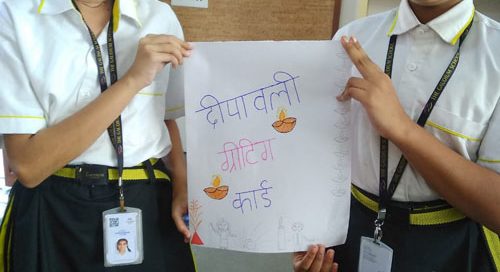 दीपावली
ग्रीटिंग
कार्ड